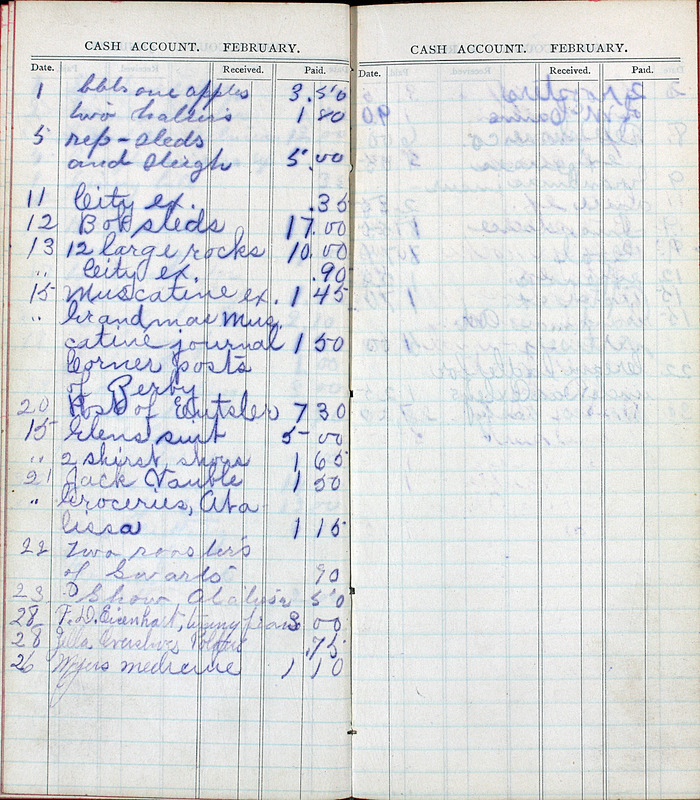 CASH ACCOUNT. FEBRUARY.
Date. Received. Paid.
1 bbls one apples 3.50
two halters 1 80
5 rep-sleds
and sleigh 5.00
11 City ex. .35
12 Bob sleds 17.00
13 12 large rocks 10.00
" City ex. .90
15 Muscatine ex. 1 45
" Grandmas Mus
catine journal 1 50
Corner posts
of Perby
20 Post of Eutsler 7 30
15 Glens suit 5-00
" 2 shirst, shoes 1 65
21 Jack Vauble 1 50
" Groceries, Ata
lissa 1 15
22 Two roosters
of Swarts 90
23 Show Atalissa 50
28 F. D. Eisenhart, 3 00
28 .75
26 Myers medicine 1 10
CASH ACCOUNT. FEBRUARY.
Date. Received. Paid.